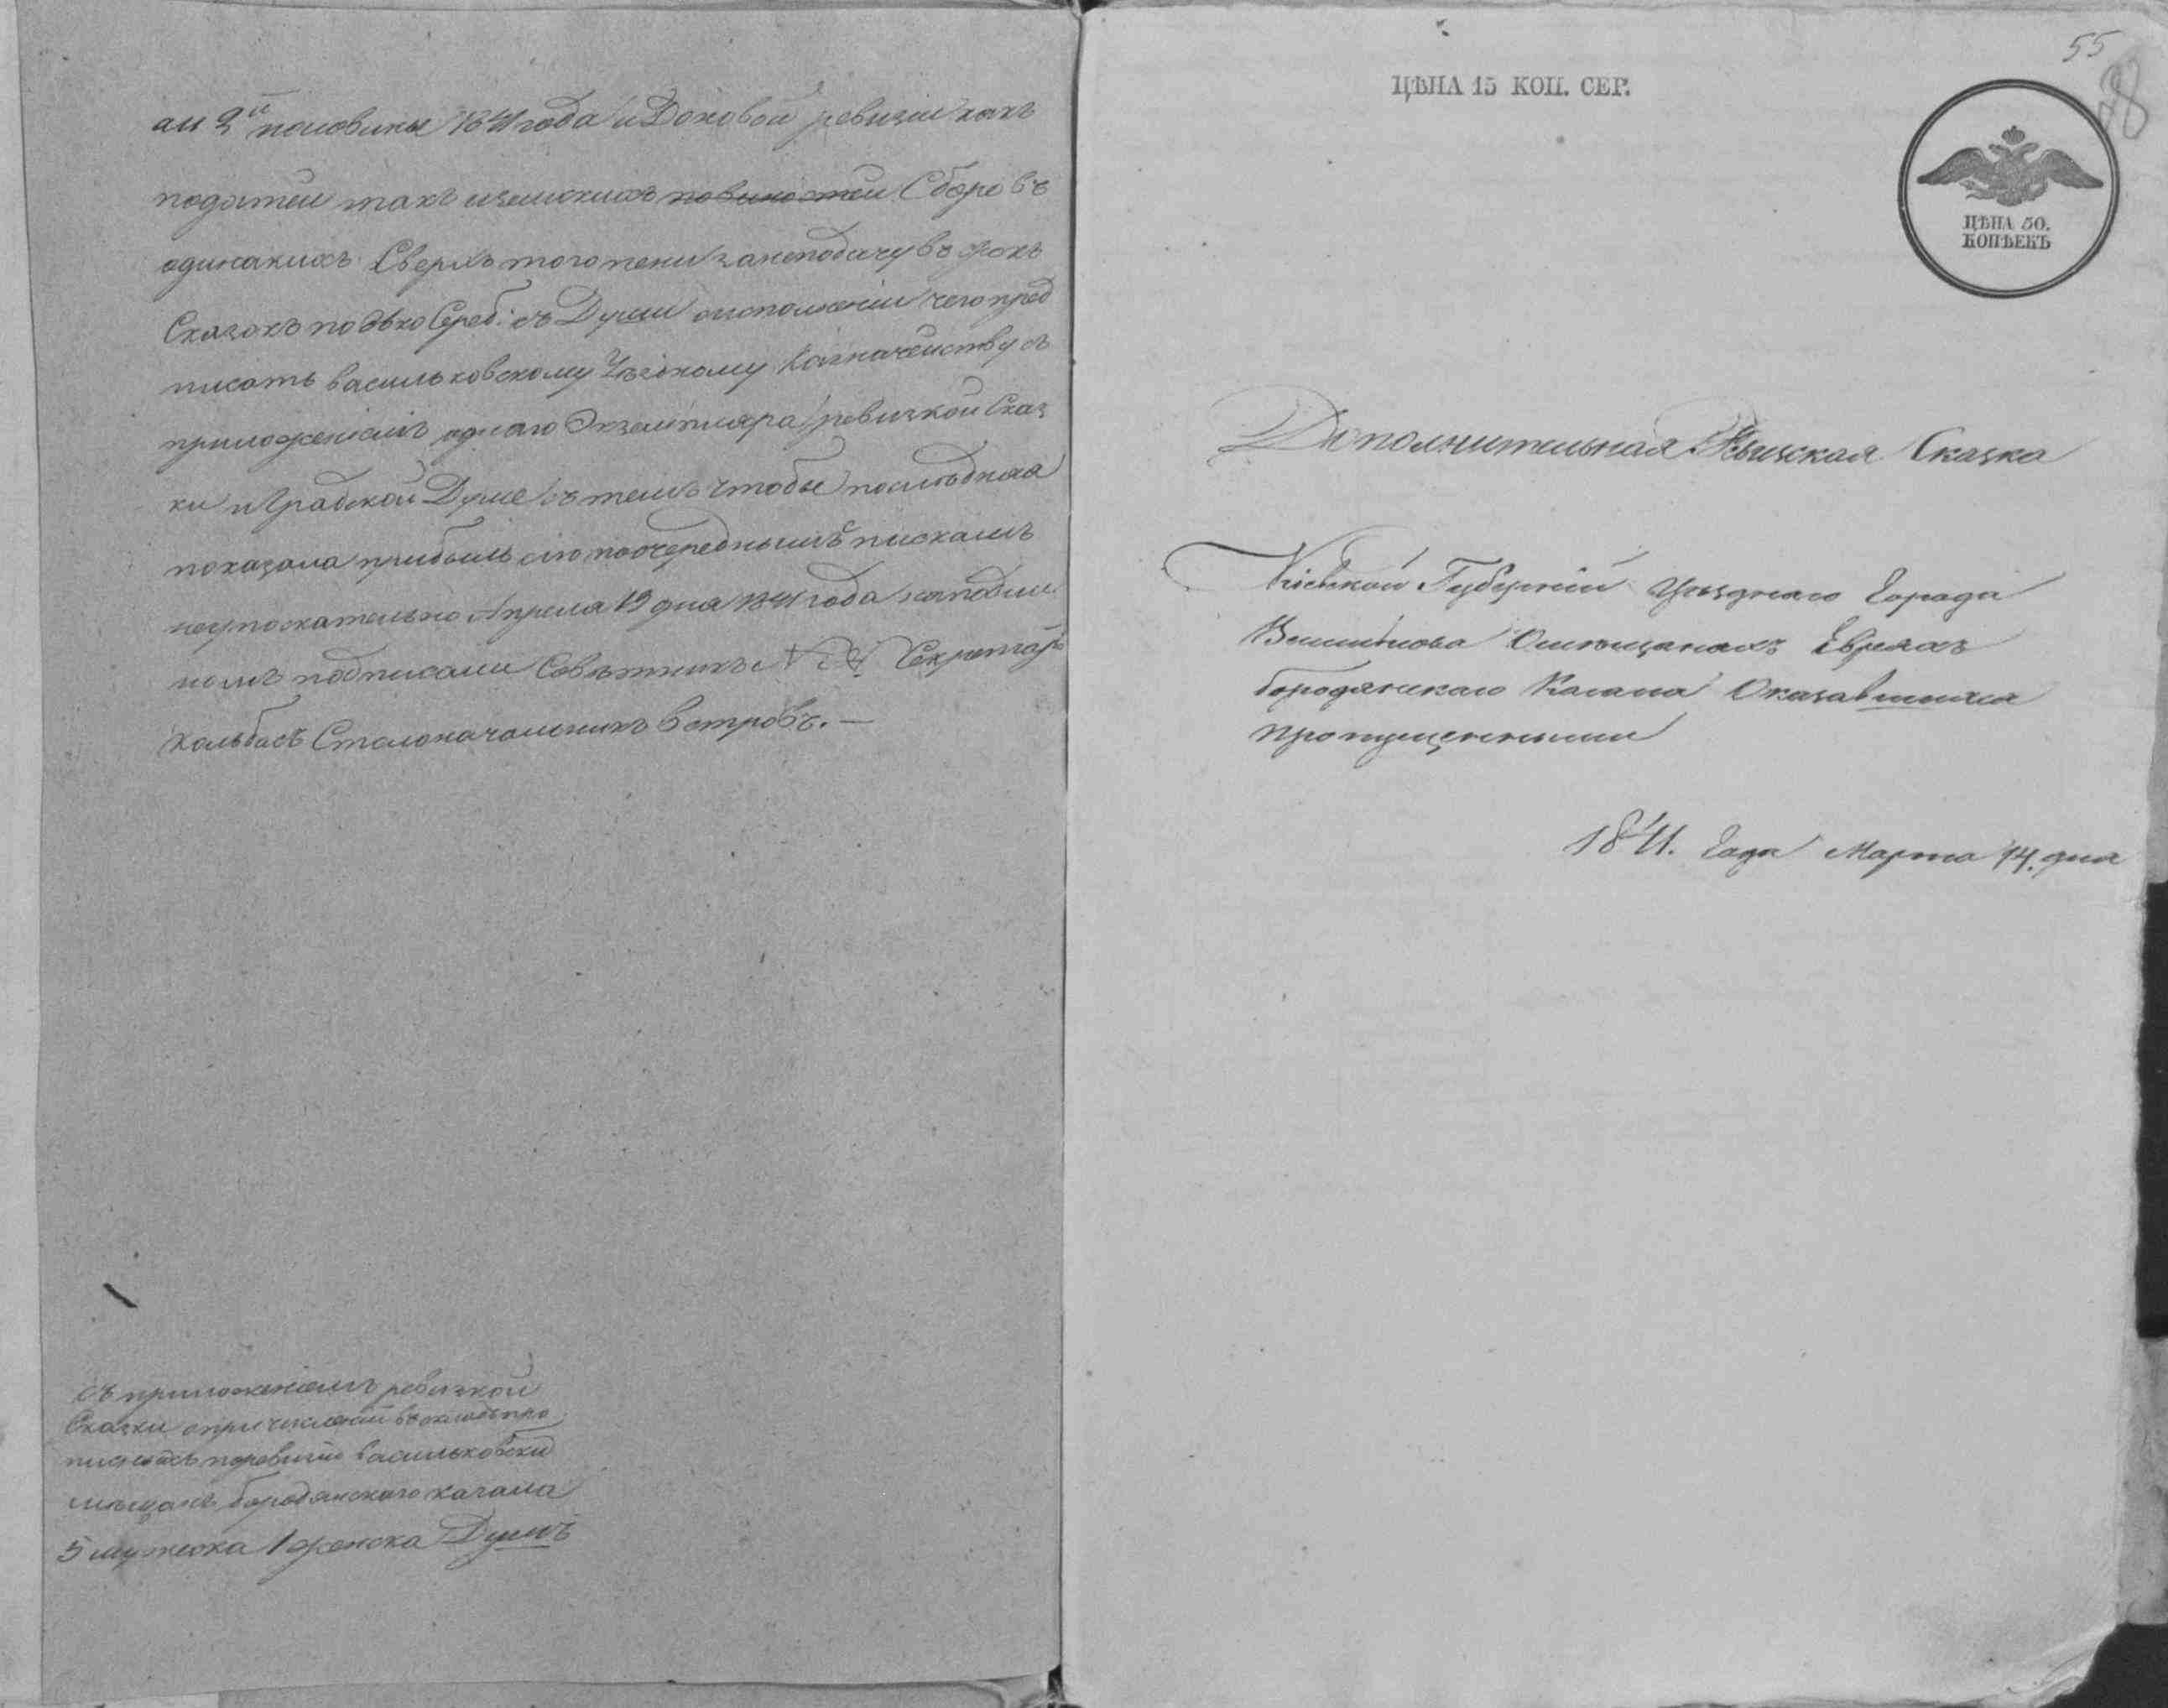 ам 2й половины 1841 года и Доновой ревизіи какъ
податей такъ и земскихъ повиностей Сборовъ
одинакихъ Сверхъ того пени занеподачу въ срокъ
Сказокъ по Сереб: съ Души оисполненіи чего пред
писать васильковскому Уездному Казначейству съ
приложеніемъ одного Экземпляра ревизкой Сказ
ки и Градской Думе съ темъ чтобы последняя
показала прибыль сію поочереднымъ пискамъ
неупоскательно Апреля 19 дня 1841 года заподли
номъ подписали Советникъ Секретарь
Кольбасъ Столоначальникъ Ветровъ.—
съ приложеніемъ ревизкой
Сказки опричисленіи въокладъ про
писныхъ поревизіи васильковски
мещанъ бородянского кагала
5 мужеска 1 женска Душъ
55
ЦѢНА 15 КОП. СЕР.
ЦѢНА 50.
КОПѢЕКЪ
Дополнительная Ревизская Сказка
Кіевской Губерніи Уезднаго Города
Василькова Омещанахъ Евреяхъ
бородянскаго Кагала Оказавшимися
пропущенными
1841. Года Марта 14. дня